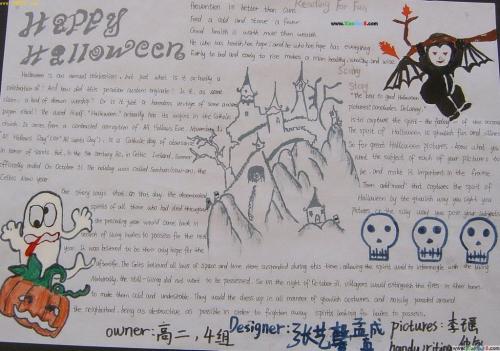 Happy
Halloween
Prevention is better than cure
Reading for Fun
Feed a cold and starve a fever
Good health is worth more than wealth
He who has health has hope; and he who has hope has everything
Early to bed and early to rise makes a man healthy, wealthy and wise
Scary
Story
Halloween is an annual celebration, but just what is it actually a
celebration of? And how did this peculiar custom originate? Is it, as some
claim, a kind of demon worship? Or is it just a harmless vestige of some ancient
pagan ritual? The word itself, "Halloween," actually has its origins in the Catholic
Church. It comes from a contracted corruption of All Hallows Eve. November 1,
"All Hallows Day" (or "All Saints Day"), is a Catholic day of observance
in honor of saints. But, in the 5th century BC, in Celtic Ireland, summer
officially ended on October 31. The holiday was called Samhain (sow-en), the
Celtic New year.
One story says that, on that day, the disembodied
spirits of all those who had died throughout
the preceding year would come back in
search of living bodies to possess for the next
year. It was believed to be their only hope for the
afterlife. The Celts believed all laws of space and time were suspended during this time, allowing the spirit world to intermingle with the living
Naturally, the still-living did not want to be possessed. So on the night of October 31, villagers would extinguish the fires in their homes
to make them cold and undesirable. They would then dress up in all manner of ghoulish costumes and noisily paraded around
the neighborhood, being as destructive as possible in order to frighten away spirits looking for bodies to possess.
The spirit of Halloween is ghoulish fun and
So for great Halloween pictures, know what you
want the subject of each of your pictures
be, and make it important in the frame.
Then add mood that captures the spirit of
Halloween by the ghoulish way you light your
Picture or the way you pose your subjects
owner: 高二, 4组
Designer: 张艺馨 孟成
pictures: 李
handwriting: